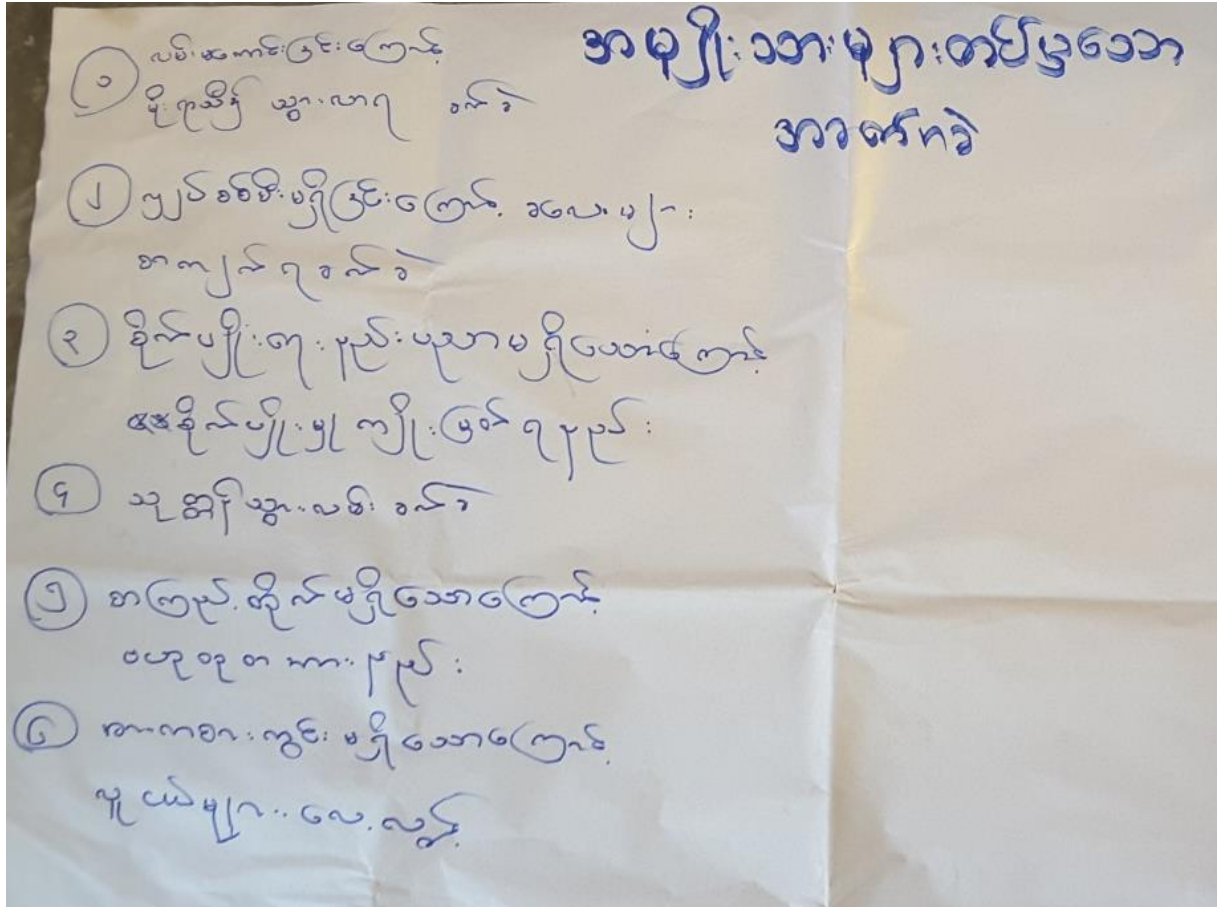 အမျိုးသားများတင်ပြသော
အခက်ခဲ
၁ လမ်းမကောင်းခြင်းကြောင့်
မိုးရာသီ၌ သွားလာရ ခက်ခဲ
၂ လျှပ်စစ်မီးမရှိခြင်းကြောင့် ခလေးများ
စာကျက်ရခက်ခဲ
၃ စိုက်ပျိုးရေးနည်းပညာမရှိသောကြောင့်
စိုက်ပျိုးမှု ကျိုးမြတ်ရနည်း
၄ သုဿန်သွားလမ်း ခက်ခဲ
၅ စာကြည့်တိုက်မရှိသောကြောင့်
ဗဟုသုတ အားနည်း
၆ အားကစားကွင်းမရှိသောကြောင့်
လူငယ်များလေလွင့်